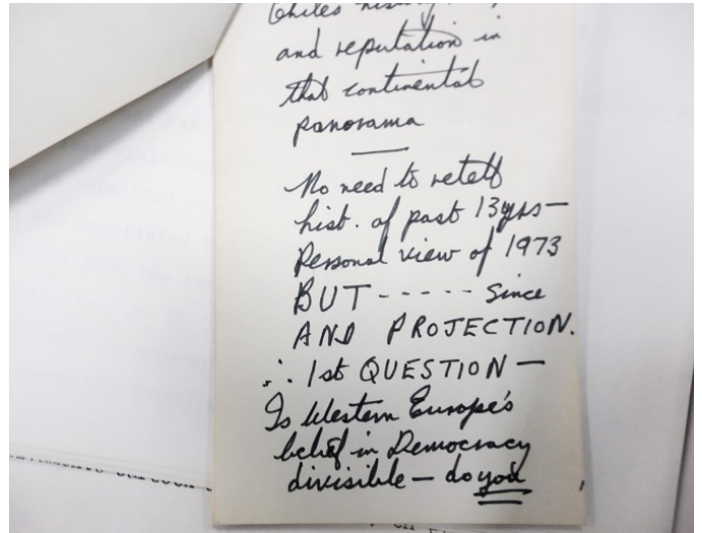 Chiles history
and reputation in
that continental
panorama
No need to retell
hist. of past 13yrs —
Personal view of 1973
BUT ----- Since
AND PROJECTION.
∴ 1st QUESTION —
Is Western Europe's
belief in Democracy
divisible — do you